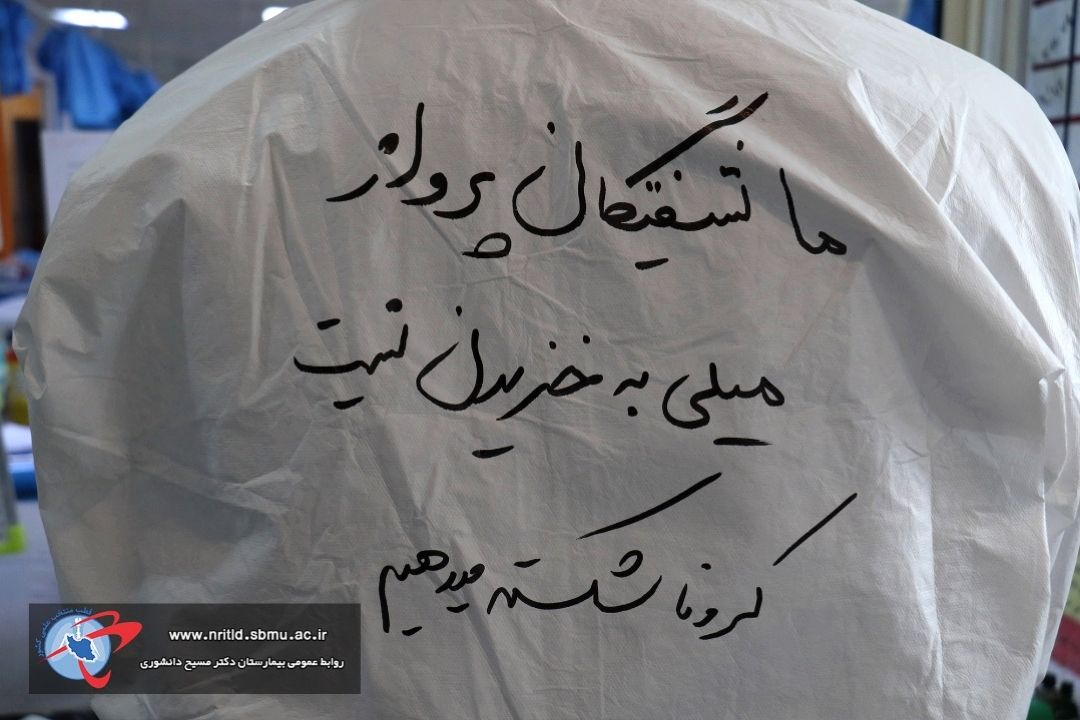 ما تشنگان پرواز
میلی به خزیدن نیست
کرونا شکسته میدهیم
www.nritld.sbmu.ac.ir
روابط عمومی بیمارستان دکتر مسیح دانشوری